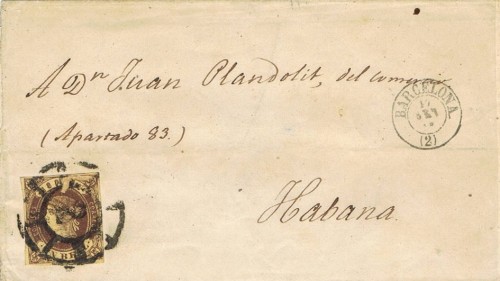 A Dn Juan Plandolit, del comercio
(Apartado 83.)
Habana.
BARCELONA
17
SET
(2)